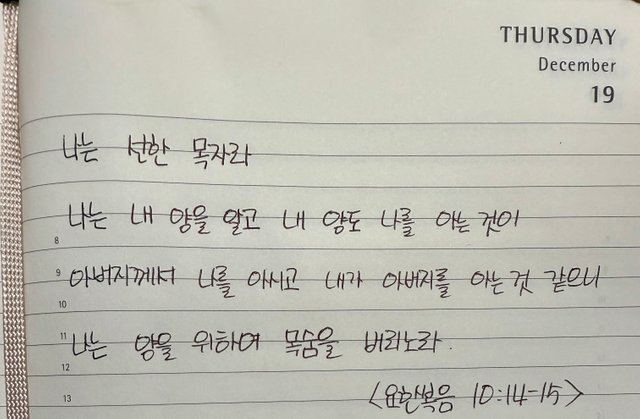 THURSDAY
December
19
나는 선한 목자라
나는 내 양을 알고 내 양도 나를 아는것이
8
9 아버지께서 나를 아시고 내가 아버지를 아는것 같으니
10
11 나는 양을 위하여 목숨을 버리노라.
12
13 <요한복음 10:14-15>